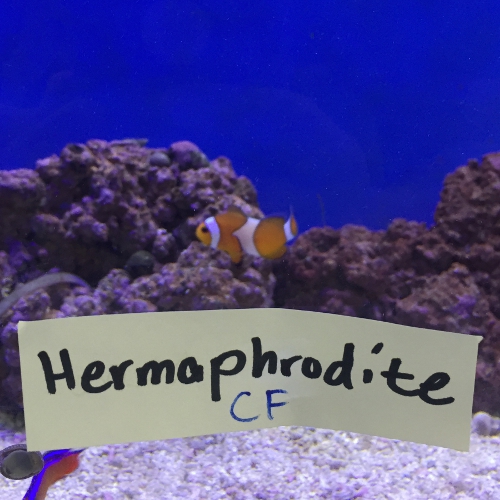 Hermaphrodite
CF